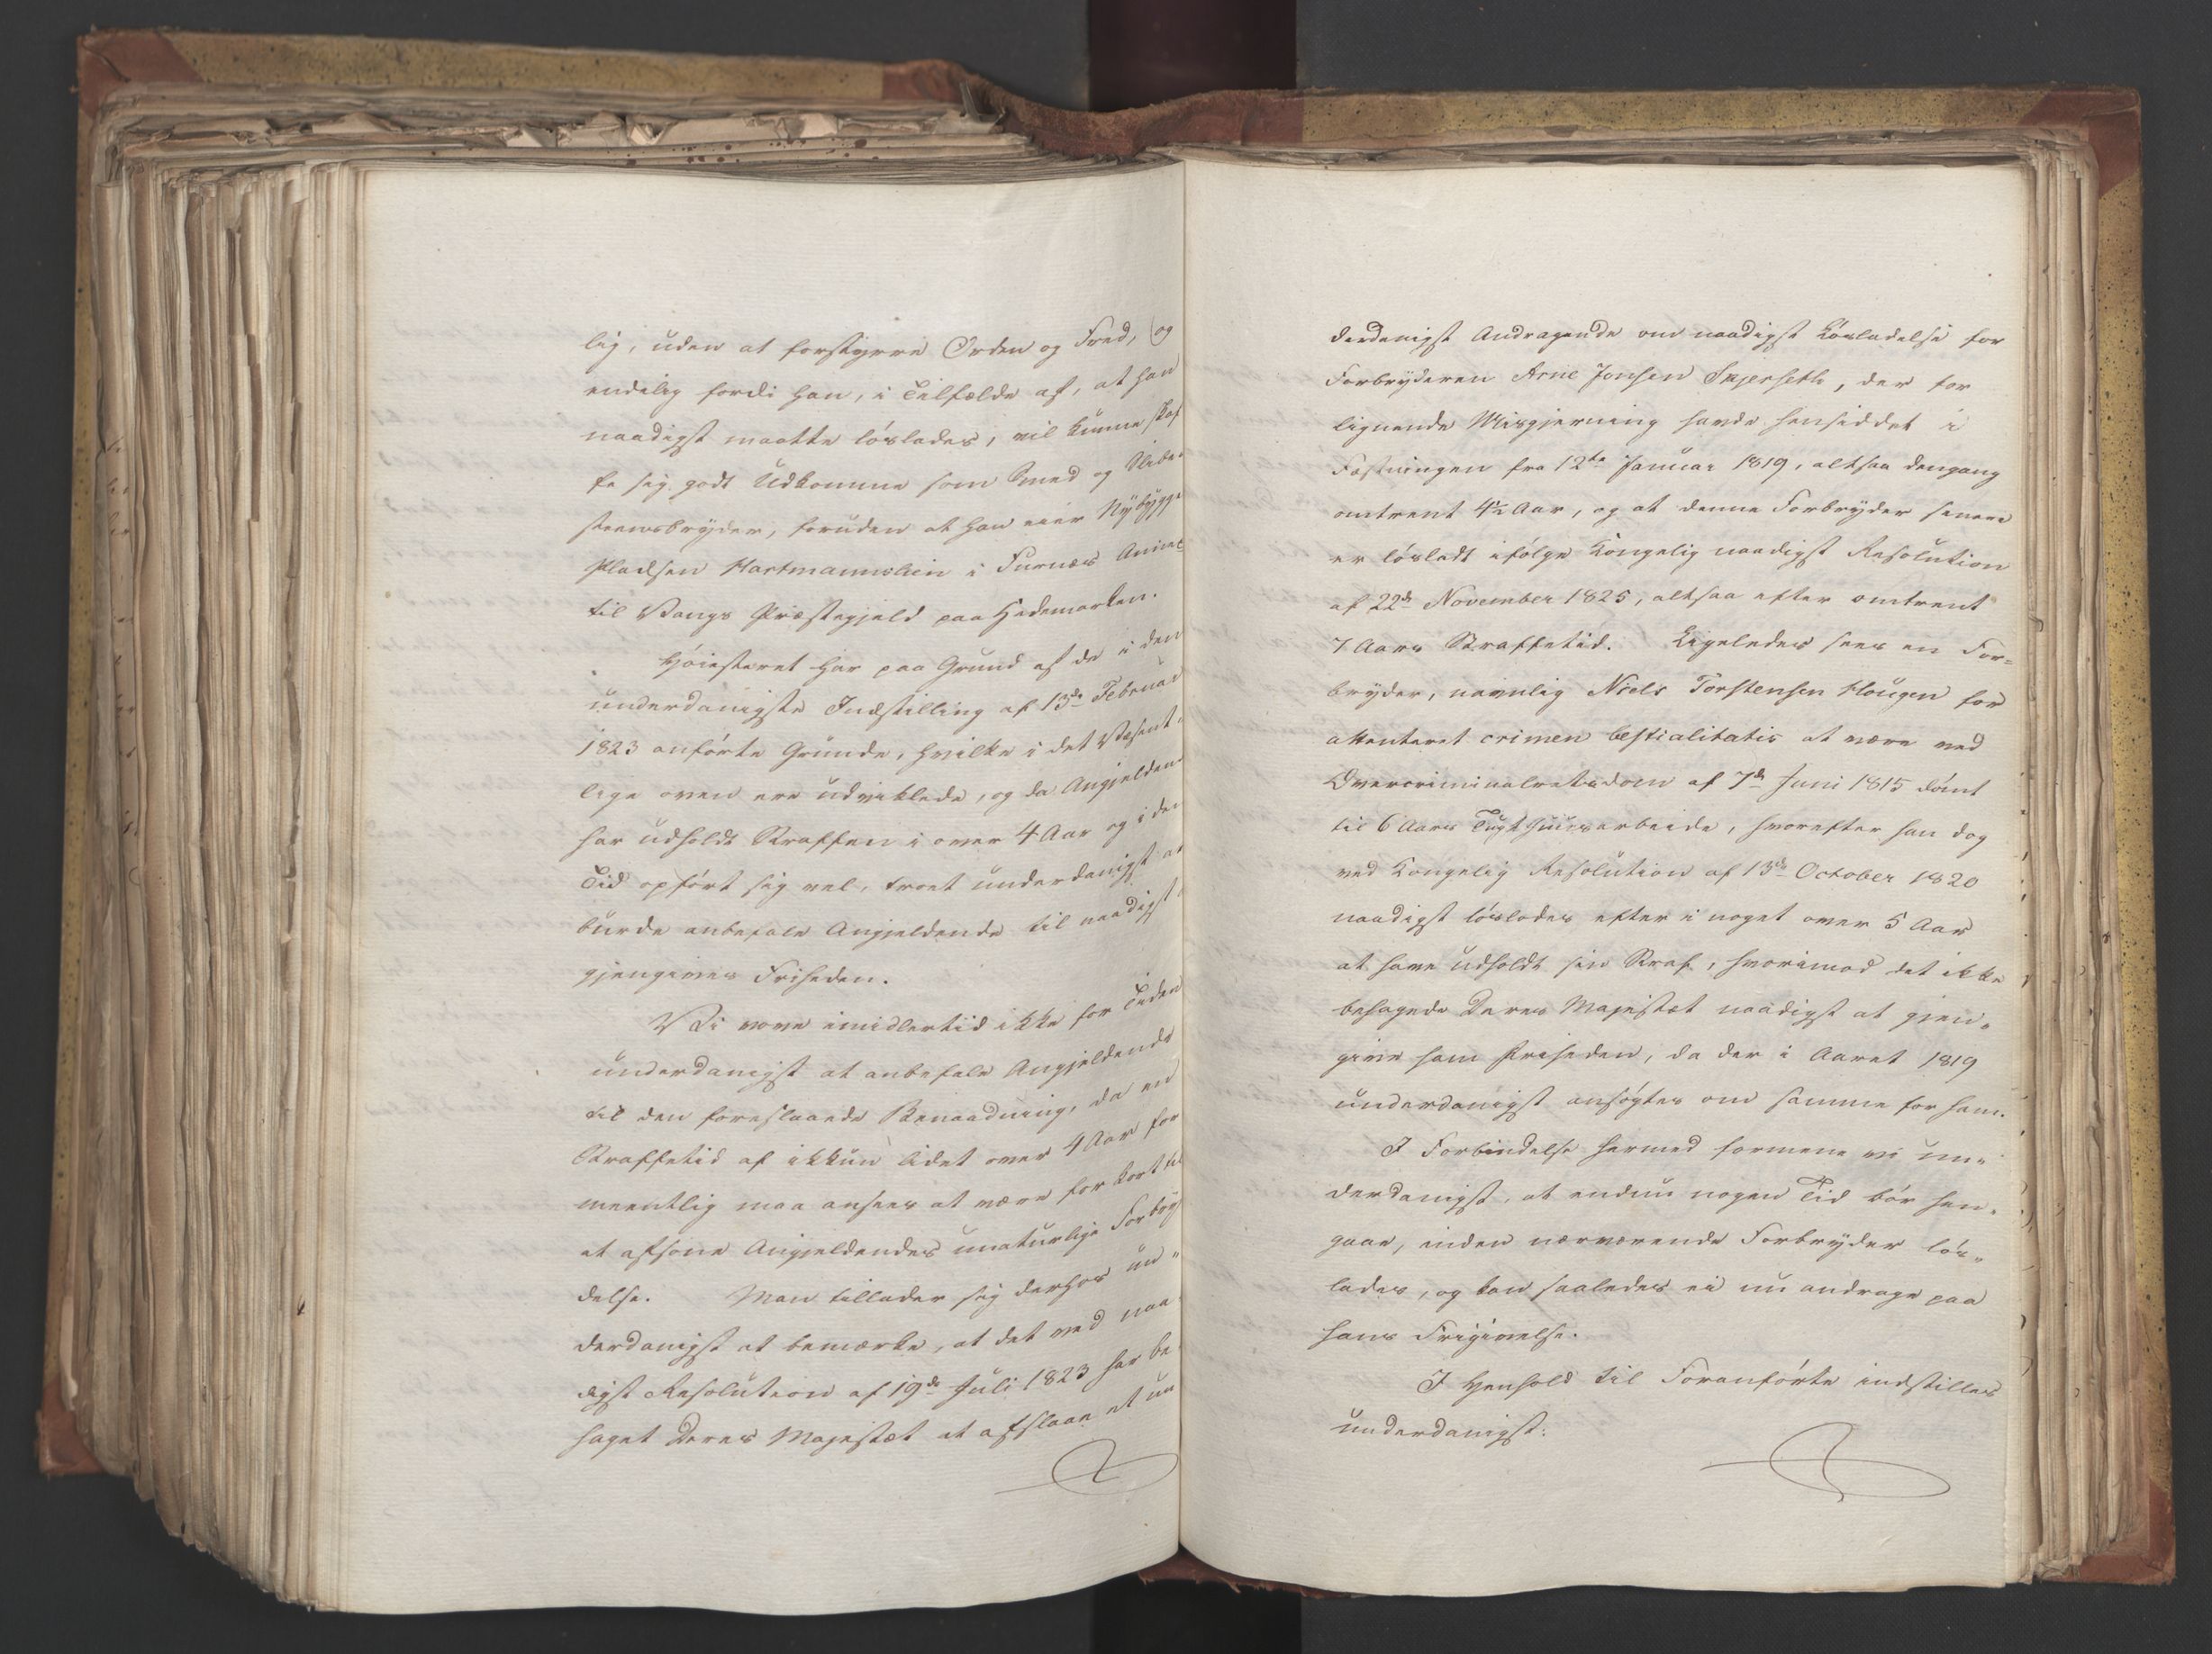 lig, uden at forstyrre Orden og Fred, og
endelig fordi han, i Tilfælde af, at han
naadigst maatte løslades, vil kunne skaf
fe sig godt Udkomme som Smed og Slibe-
steensbryder, foruden at han eier Nybygge
Pladsen Hartmannslien i Furnæs Annex
til Vangs Præstegjeld paa Hedemarken.
Høiesteret har paa Grund af de i den
underdanigste Indstilling af 13de Februar
1823 anførte Grunde, hvilke i det Væsent-
lige oven ere udviklede, og da Angjelden-
har udholdt Straffen i over 4 Aar og i den
Tid opført sig vel, troet underdanigst at
burde anbefale Angjeldende til naadigst
gjengives Friheden.
Vi vove imidlertid ikke for Tiden
underdanigst at anbefale Angjeldende
til den foreslaaede Benaadning, da en
Straffetid af ikkun lidet over 4 Aar for
meentlig maa ansees at være for kort til
at afsone Angjeldendes unaturlige Forbry
delse. Man tillader sig derhos un-
derdanigst at bemærke, at det ved naa
digst Resolution af 19de Juli 1823 har be
haget Deres Majestæt at afslaae et un
derdanigst Andragende om naadigst Løsladelse for
Forbryderen Arne Jonsen Skjerseth, der for
lignende Misgjerning havde hensiddet i
Fæstningen fra 12te Januar 1819, altsaa dengang
omtrent 4½ Aar, og at denne Forbryder senere
er løsladt ifølge Kongelig naadigst Resolution
af 22de November 1825, altsaa efter omtrent
7 Aars Straffetid. Ligeledes sees en For-
bryder, navnlig Niels Torstensen Hougen for
attenteret crimen bestialitatis at være ved
Overcriminalretsdom af 7de Juni 1815 dømt
til 6 Aars Tugthuusarbeide, hvorefter han dog
ved Kongelig Resolution af 13de October 1820
naadigst løslades efter i noget over 5 Aar
at have udholdt sin Straf, hvorimod det ikke
behagede Deres Majestæt naadigst at gjen-
give ham Friheden, da der i Aaret 1819
underdanigst ansøgtes om samme for ham.
I Forbindelse hermed formene vi un-
derdanigst, at endnu nogen Tid bør hen-
gaae, inden nærværende Forbryder løs-
lades, og kan saaledes ei nu andrage paa
hans Frigivelse.
I Henhold til Foranførte indstilles
underdanigst: